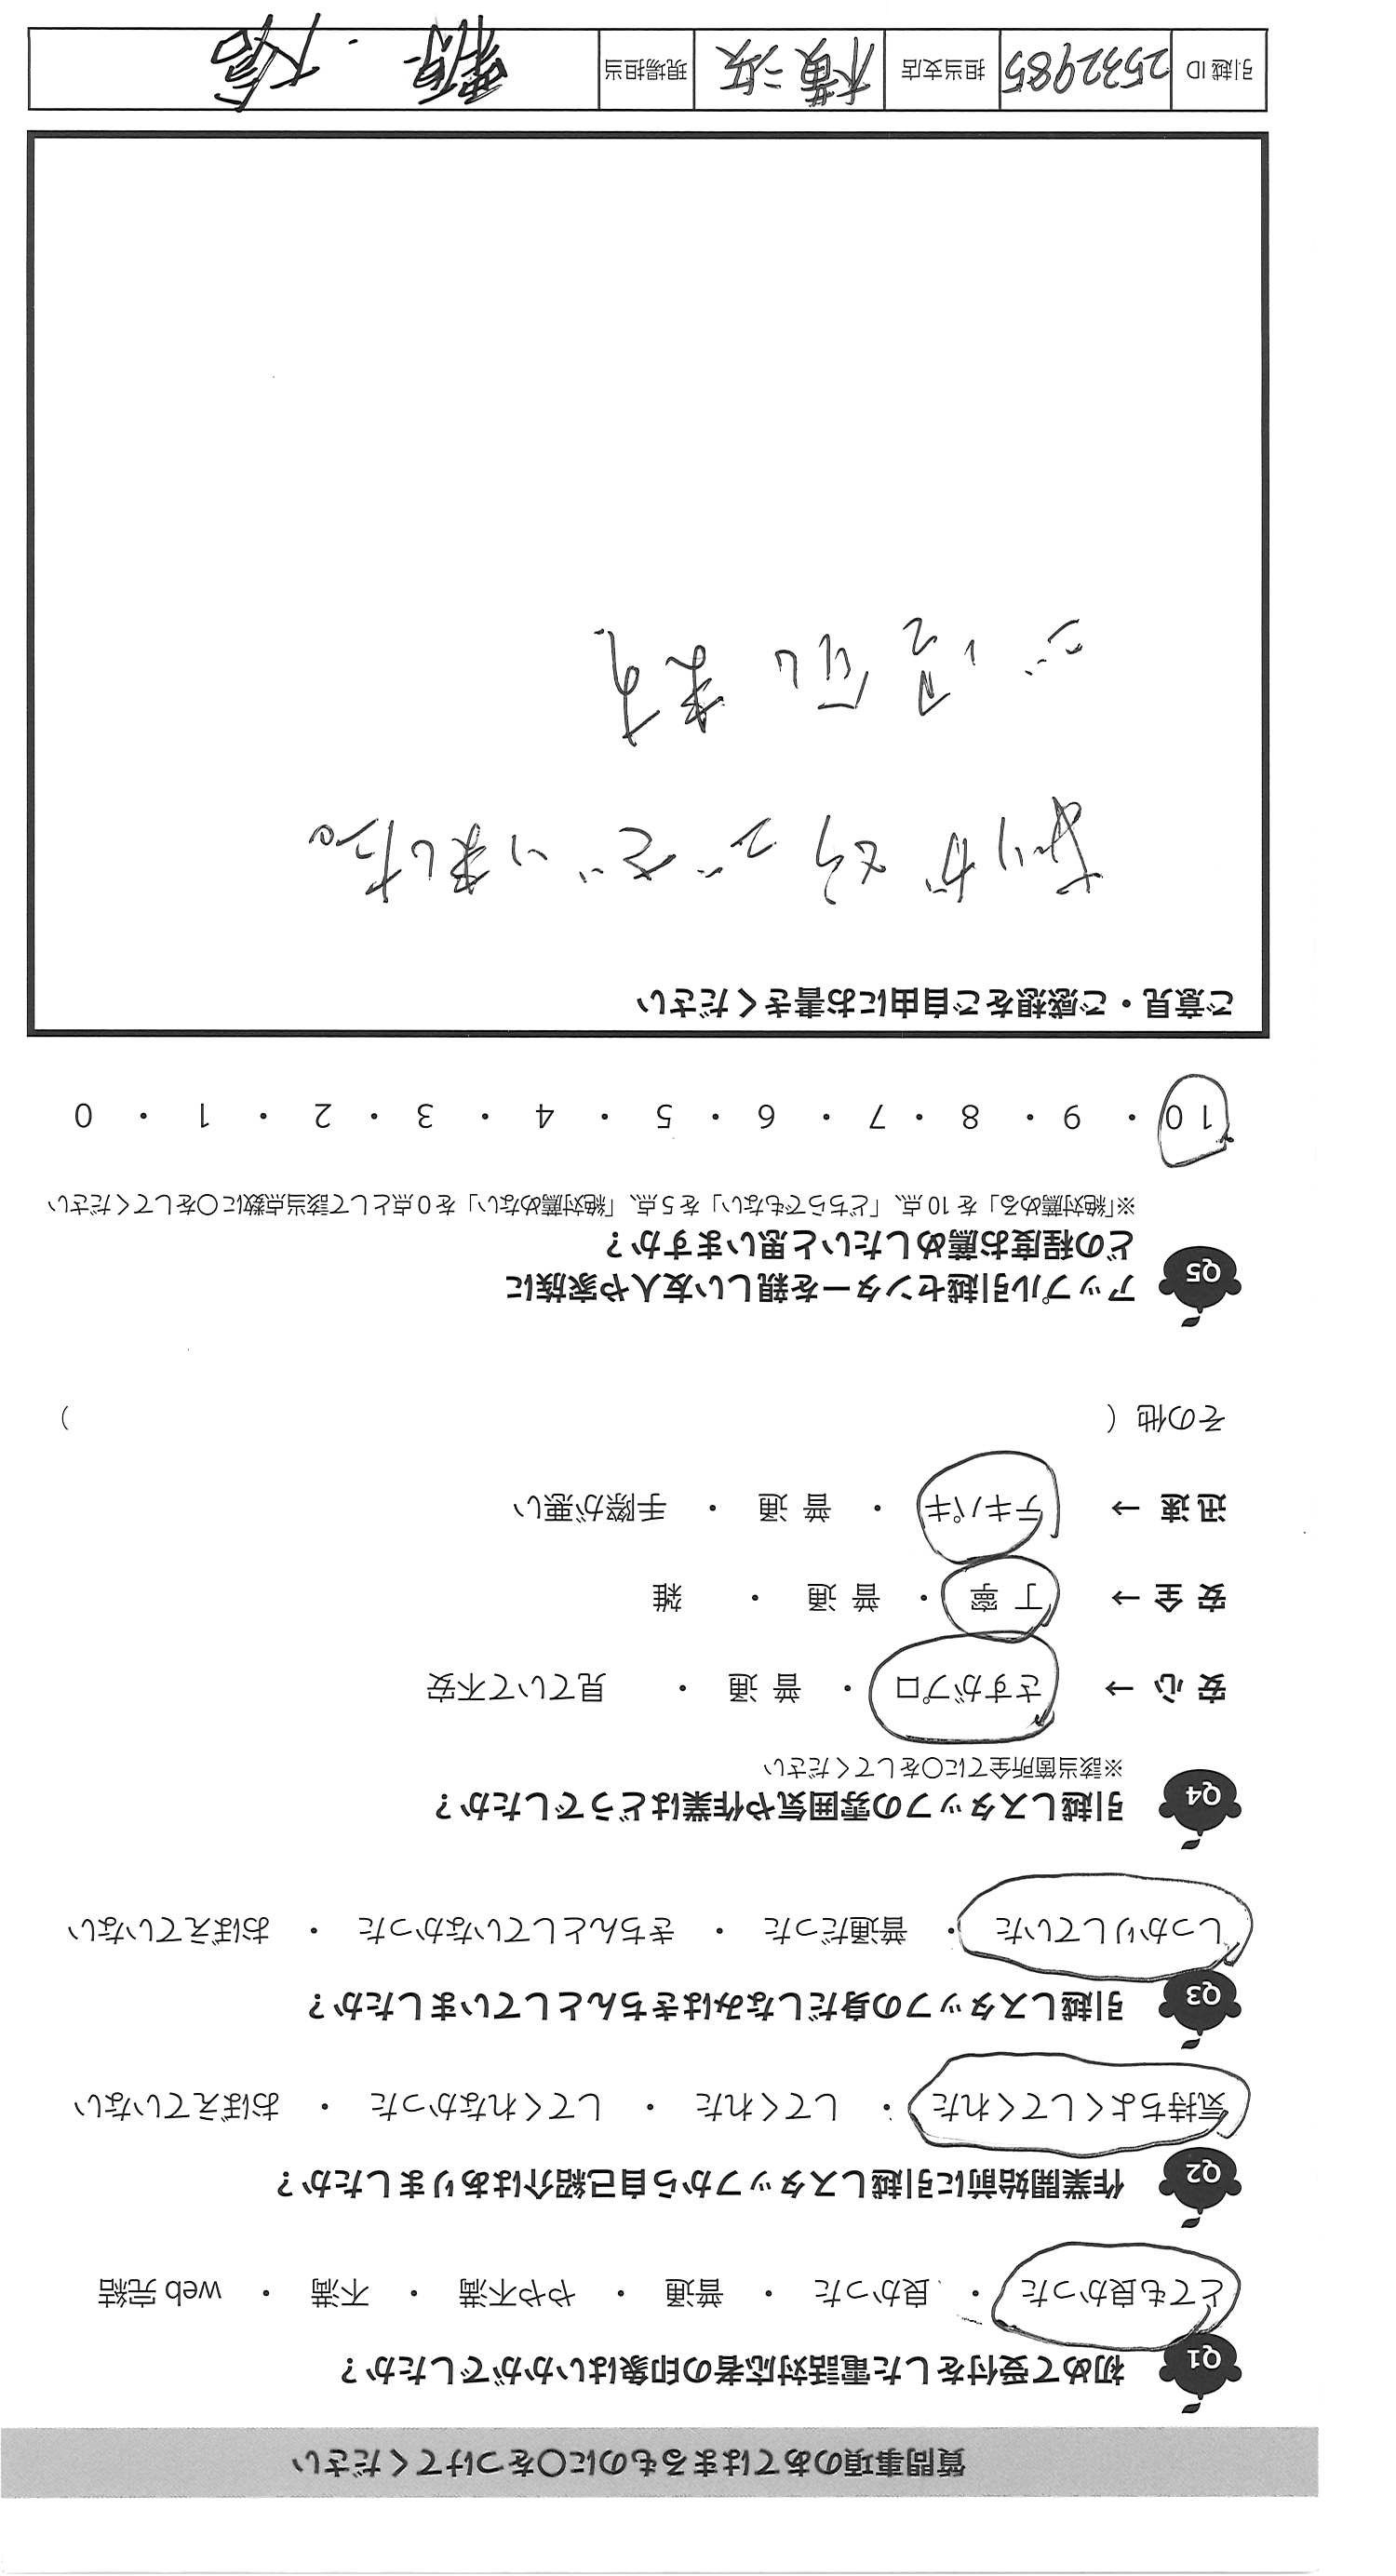 質問事項のあてはまるものに〇をつけてください
Q1 初めて受付をした電話対応者の印象はいかがでしたか？
とても良かった ・ 良かった ・ 普通 ・ やや不満 ・ 不満 ・ web 完結
Q2 作業開始前に引越しスタッフから自己紹介はありましたか？
気持ちよくしてくれた ・ してくれた ・ してくれなかった ・ おぼえていない
Q3 引越しスタッフの身だしなみはきちんとしていましたか？
しっかりしていた ・ 普通だった ・ きちんとしていなかった ・ おぼえていない
Q4 引越しスタッフの雰囲気や作業はどうでしたか？
※該当箇所全てに〇をしてください
安心 → さすがプロ ・ 普通 ・ 見ていて不安
安全 → 丁寧 ・ 普通 ・ 雑
迅速 → テキパキ ・ 普通 ・ 手際が悪い
その他（ ）
Q5 アップル引越センターを親しい友人や家族に
どの程度お薦めしたいと思いますか？
※「絶対薦める」を 10 点、「どちらでもない」を 5 点、「絶対薦めない」を 0 点として該当点数に〇をしてください
10 ・ 9 ・ 8 ・ 7 ・ 6 ・ 5 ・ 4 ・ 3 ・ 2 ・ 1 ・ 0
ご意見・ご感想をご自由にお書きください
ありがとうございました。
ます。
引越 ID 2532985 担当支店 横浜 現場担当